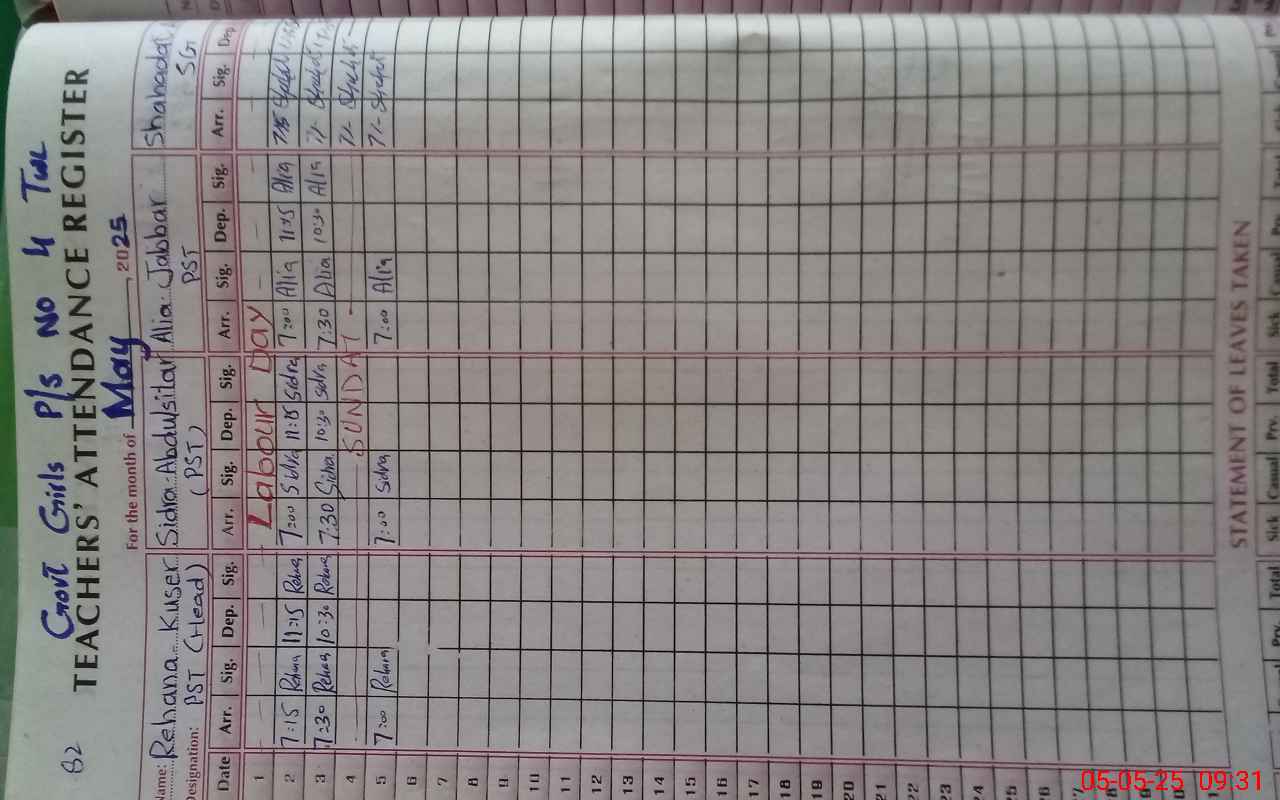 82
Govt Girls P/S No 4 Twl
TEACHERS' ATTENDANCE REGISTER
For the month of May, 2025
Name: Rehana Kuser Sidra Abdulsitar Alia Jabbar Shahadat
Designation: PST (Head) (PST) PST SG
Date Arr. Sig. Dep. Sig. Arr. Sig. Dep. Sig. Arr. Sig. Dep. Sig. Arr. Sig. Dep.
1 Labour Day
2 7:15 Rehana 11:15 Rehana 7:00 Sidra 11:15 Sidra 7:00 Alia 11:15 Alia 7:15
3 7:30 Rehana 10:30 Rehana 7:30 Sidra 10:30 Sidra 7:30 Alia 10:30 Alia 7/-
4 SUNDAY 7/-
5 7:00 Rehana 7:00 Sidra 7:00 Alia 7/-
6
7
8
9
10
11
12
13
14
15
16
17
18
19
20
21
22
23
24
25
26
STATEMENT OF LEAVES TAKEN
Sick Casual Prv. Total Sick
05-05-25 09:31